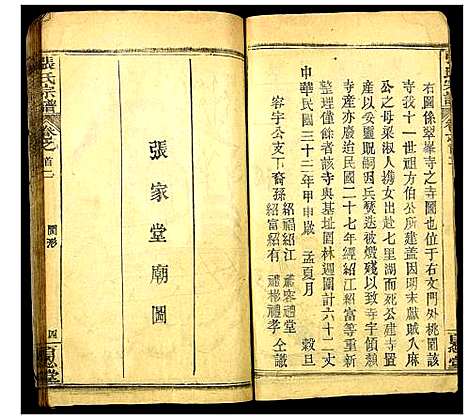 右圖係翠峯寺之寺圖也位于右文門外桃園該
寺我十一世祖方伯公所建蓋因明末獻賊入麻
公母梁淑人攜女出赴七里湖而死公建寺置
產以妥靈貺嗣因兵燹迭被燬殘以致寺宇傾頹
寺產亦廢迨民國二十七年經紹江紹富等重新
整理僅餘者該寺與基址園林週圍計六十二丈
中華民國三十三年甲申歲 孟夏月 穀旦
容宇公支下裔孫 紹福紹江 禮容禮堂
紹富紹有 禮彬禮孝 仝識
張家堂廟圖
張氏宗譜 卷之首二 圖形 四 百忍堂